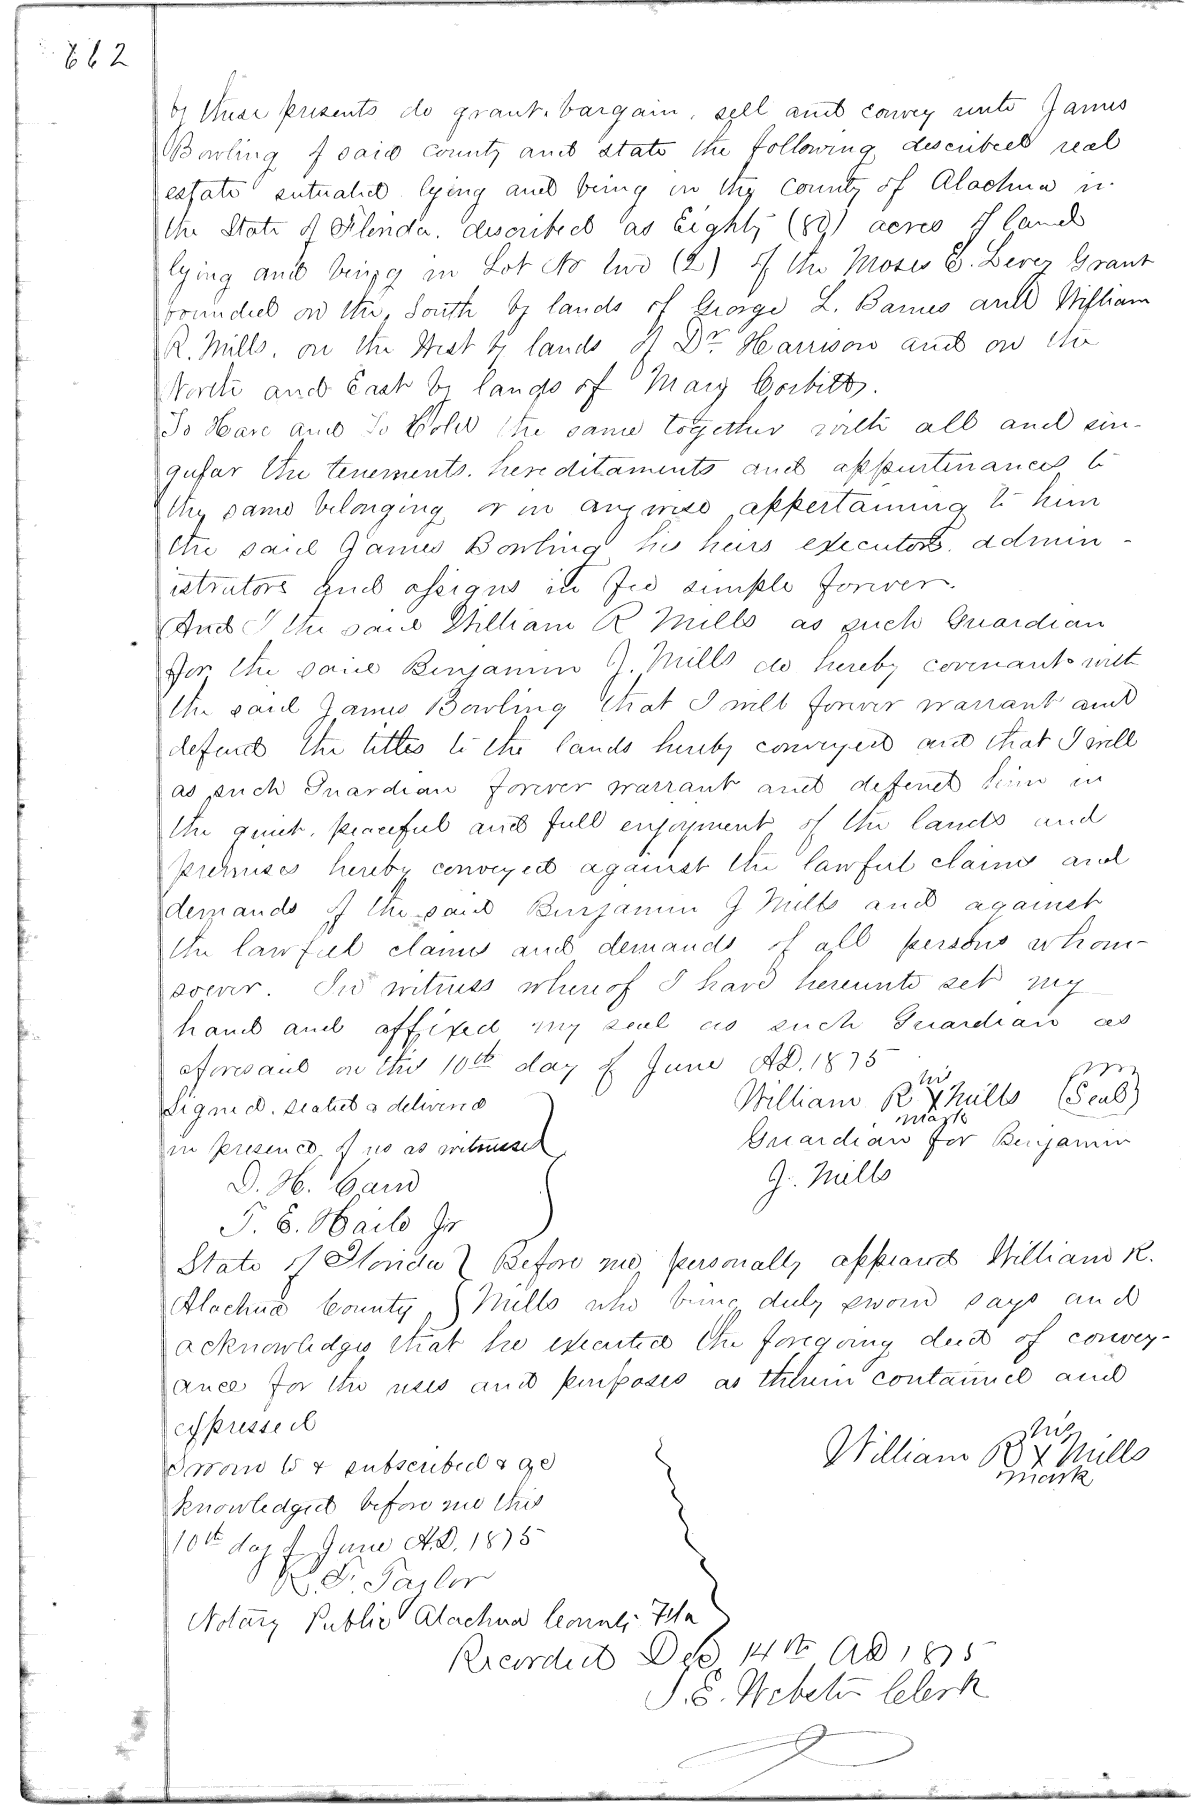 662
by these presents do grant, bargain, sell and convey unto James
Bowling of said county and state the following described real
estate sutuated lying and being in the county of Alachua in
the State of Florida. described as Eighty (80) acres of land
lying and being in Lot No two (2) of the Moses E. Levey Grant
bounded on the South by lands of George L. Barnes and William
R. Mills, on the West by lands of Dr. Harrison and on the
North and East by lands of Mary Corbitts.
To Have and To Hold the same together with all and sin-
gular the tenements. hereditaments and appurtinances to
the same belonging or in anywise appertaining to him
the said James Bowling his heirs executors. admin-
istrators and assigns in fee simple forever.
And I the said William R Mills as such Guardian
for the said Benjamin J. Mills do hereby covenant with
the said James Bowling that I will forever warrant and
defend the titles to the lands hereby conveyed and that I will
as such Guardian forever warrant and defend him in
the quiet, peaceful and full enjoyment of the lands and
premises hereby conveyed against the lawful claims and
demands of the said Benjamin J Mills and against
the lawful claims and demands of all persons whom-
soever. In witness whereof I have hereunto set my
hand and affixed my seal as such Guardian as
aforesaid on this 10th day of June A.D. 1875
Signed. sealed & delivered
in presence of us as witnesses
D. H. Cain
T. E. Haile Jr
his
William R X Mills (Seal)
mark
Guardian for Benjamin
J. Mills
State of Florida } Before me personally appeared William R.
Alachua County } Mills who being duly sworn says and
acknowledges that he executed the foregoing deed of convey-
ance for the uses and purposes as therein contained and
expressed
his
William R X Mills
mark
Sworn to & subscribed & ac
knowledged before me this
10th day of June A.D. 1875
R. F. Taylor
Notary Public Alachua County Fla
Recorded Dec 14th AD 1875
J. E. Webster Clerk